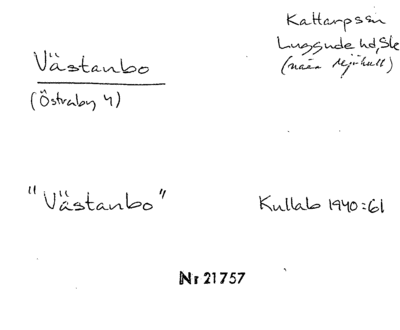 Västanbo
(Östraby 4)
Kattarpssn
Luggude hd, Sk
(nära Mjöhult)
"Västanbo"
Kullab 1940:61
Nr 21757